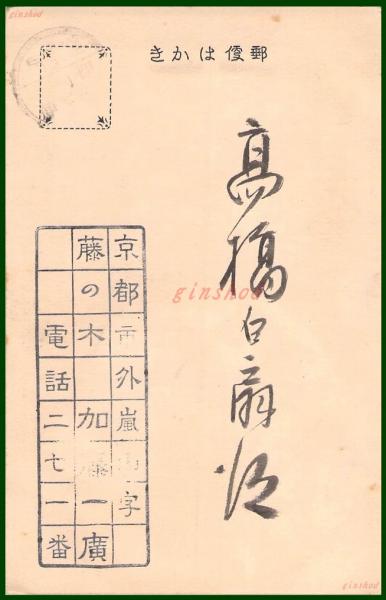 ginshod
ginshod
郵便はかき
高橋白
ginshod
京都市外嵐山字
藤の木 加藤一廣
電話二七一番
ginshod